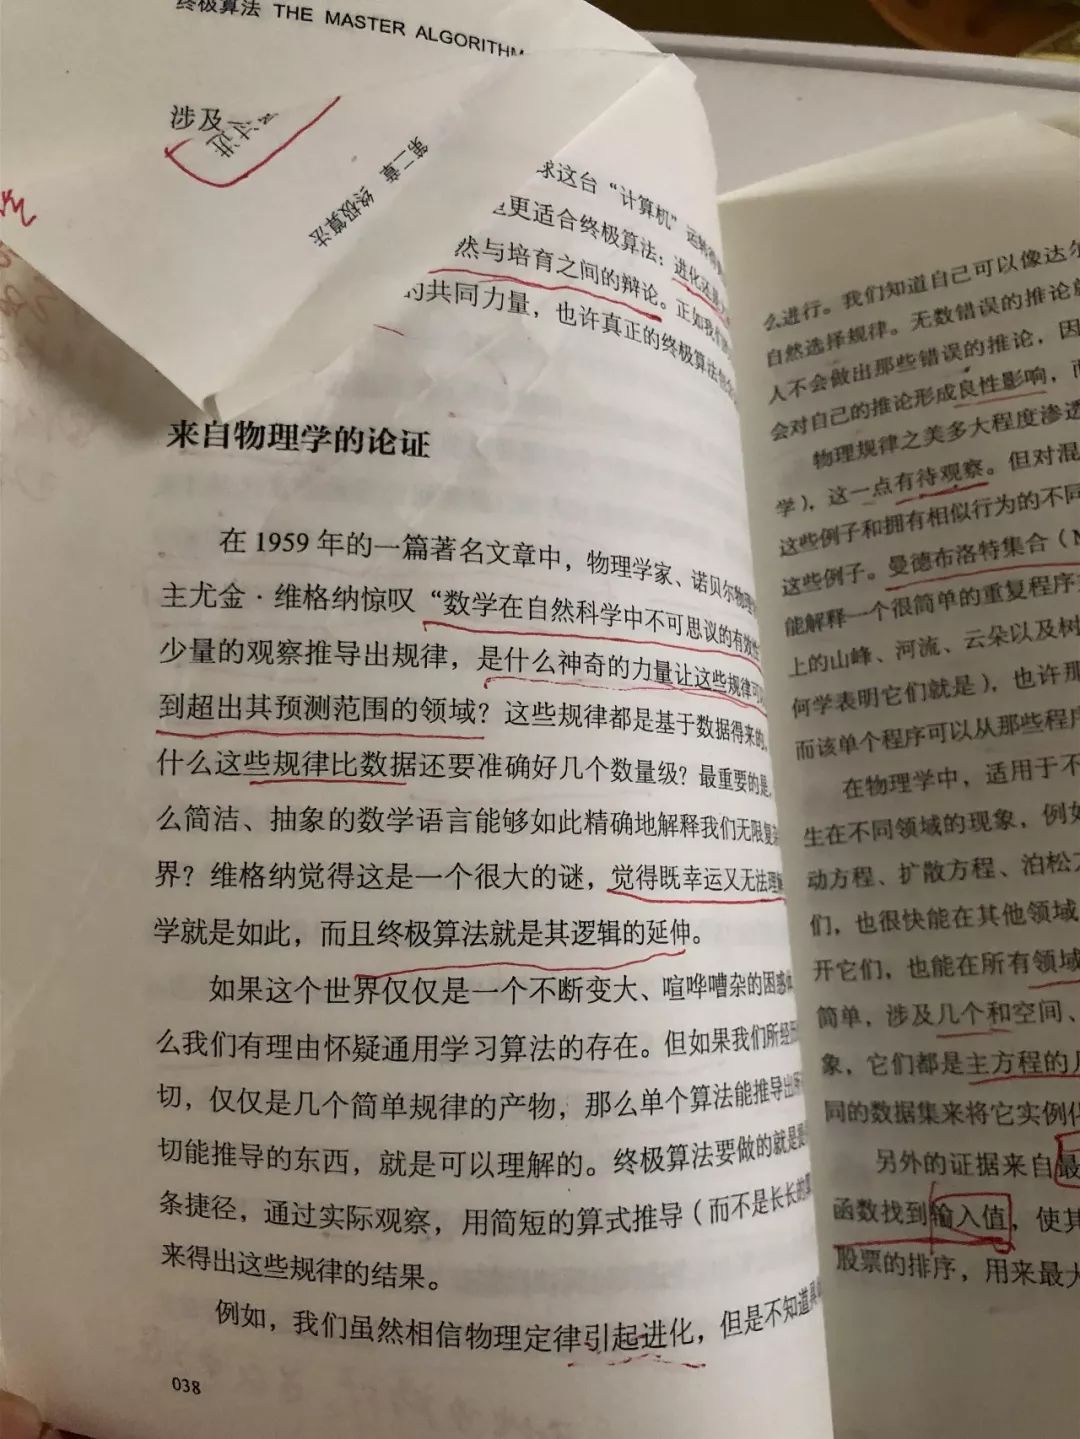 终极算法 THE MASTER ALGORITHM
涉及
第二章 终极算法
球这台“计算机”运转
更适合终极算法：进化还是
然与培育之间的辩论。正如我们
的共同力量，也许真正的终极算法
来自物理学的论证
在 1959 年的一篇著名文章中，物理学家、诺贝尔物理
主尤金·维格纳惊叹“数学在自然科学中不可思议的有效性
少量的观察推导出规律，是什么神奇的力量让这些规律可
到超出其预测范围的领域？这些规律都是基于数据得来的，
什么这些规律比数据还要准确好几个数量级？最重要的是，
么简洁、抽象的数学语言能够如此精确地解释我们无限复杂
界？维格纳觉得这是一个很大的谜，觉得既幸运又无法理解
学就是如此，而且终极算法就是其逻辑的延伸。
如果这个世界仅仅是一个不断变大、喧哗嘈杂的困惑体，
么我们有理由怀疑通用学习算法的存在。但如果我们所经历
切，仅仅是几个简单规律的产物，那么单个算法能推导出所
切能推导的东西，就是可以理解的。终极算法要做的就是
条捷径，通过实际观察，用简短的算式推导（而不是长长的
来得出这些规律的结果。
例如，我们虽然相信物理定律引起进化，但是不知道具
038
么进行。我们知道自己可以像达尔
自然选择规律。无数错误的推论
人不会做出那些错误的推论，因
会对自己的推论形成良性影响，而
物理规律之美多大程度渗透
学），这一点有待观察。但对混
这些例子和拥有相似行为的不同
这些例子。曼德布洛特集合（
能解释一个很简单的重复程序
上的山峰、河流、云朵以及树
何学表明它们就是），也许那
而该单个程序可以从那些程序
在物理学中，适用于不
生在不同领域的现象，例如
动方程、扩散方程、泊松方
们，也很快能在其他领域
开它们，也能在所有领域
简单，涉及几个和空间、
象，它们都是主方程的几
同的数据集来将它实例化
另外的证据来自最
函数找到输入值，使其
股票的排序，用来最大